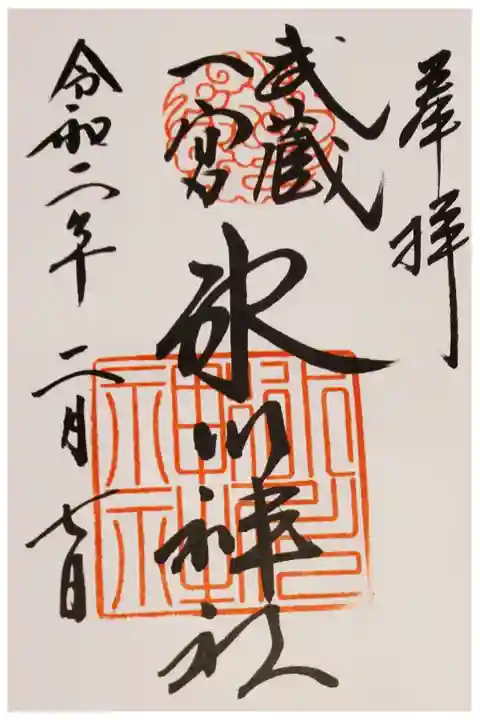 奉拝
武蔵
一宮
氷川神社
令和二年 二月七日